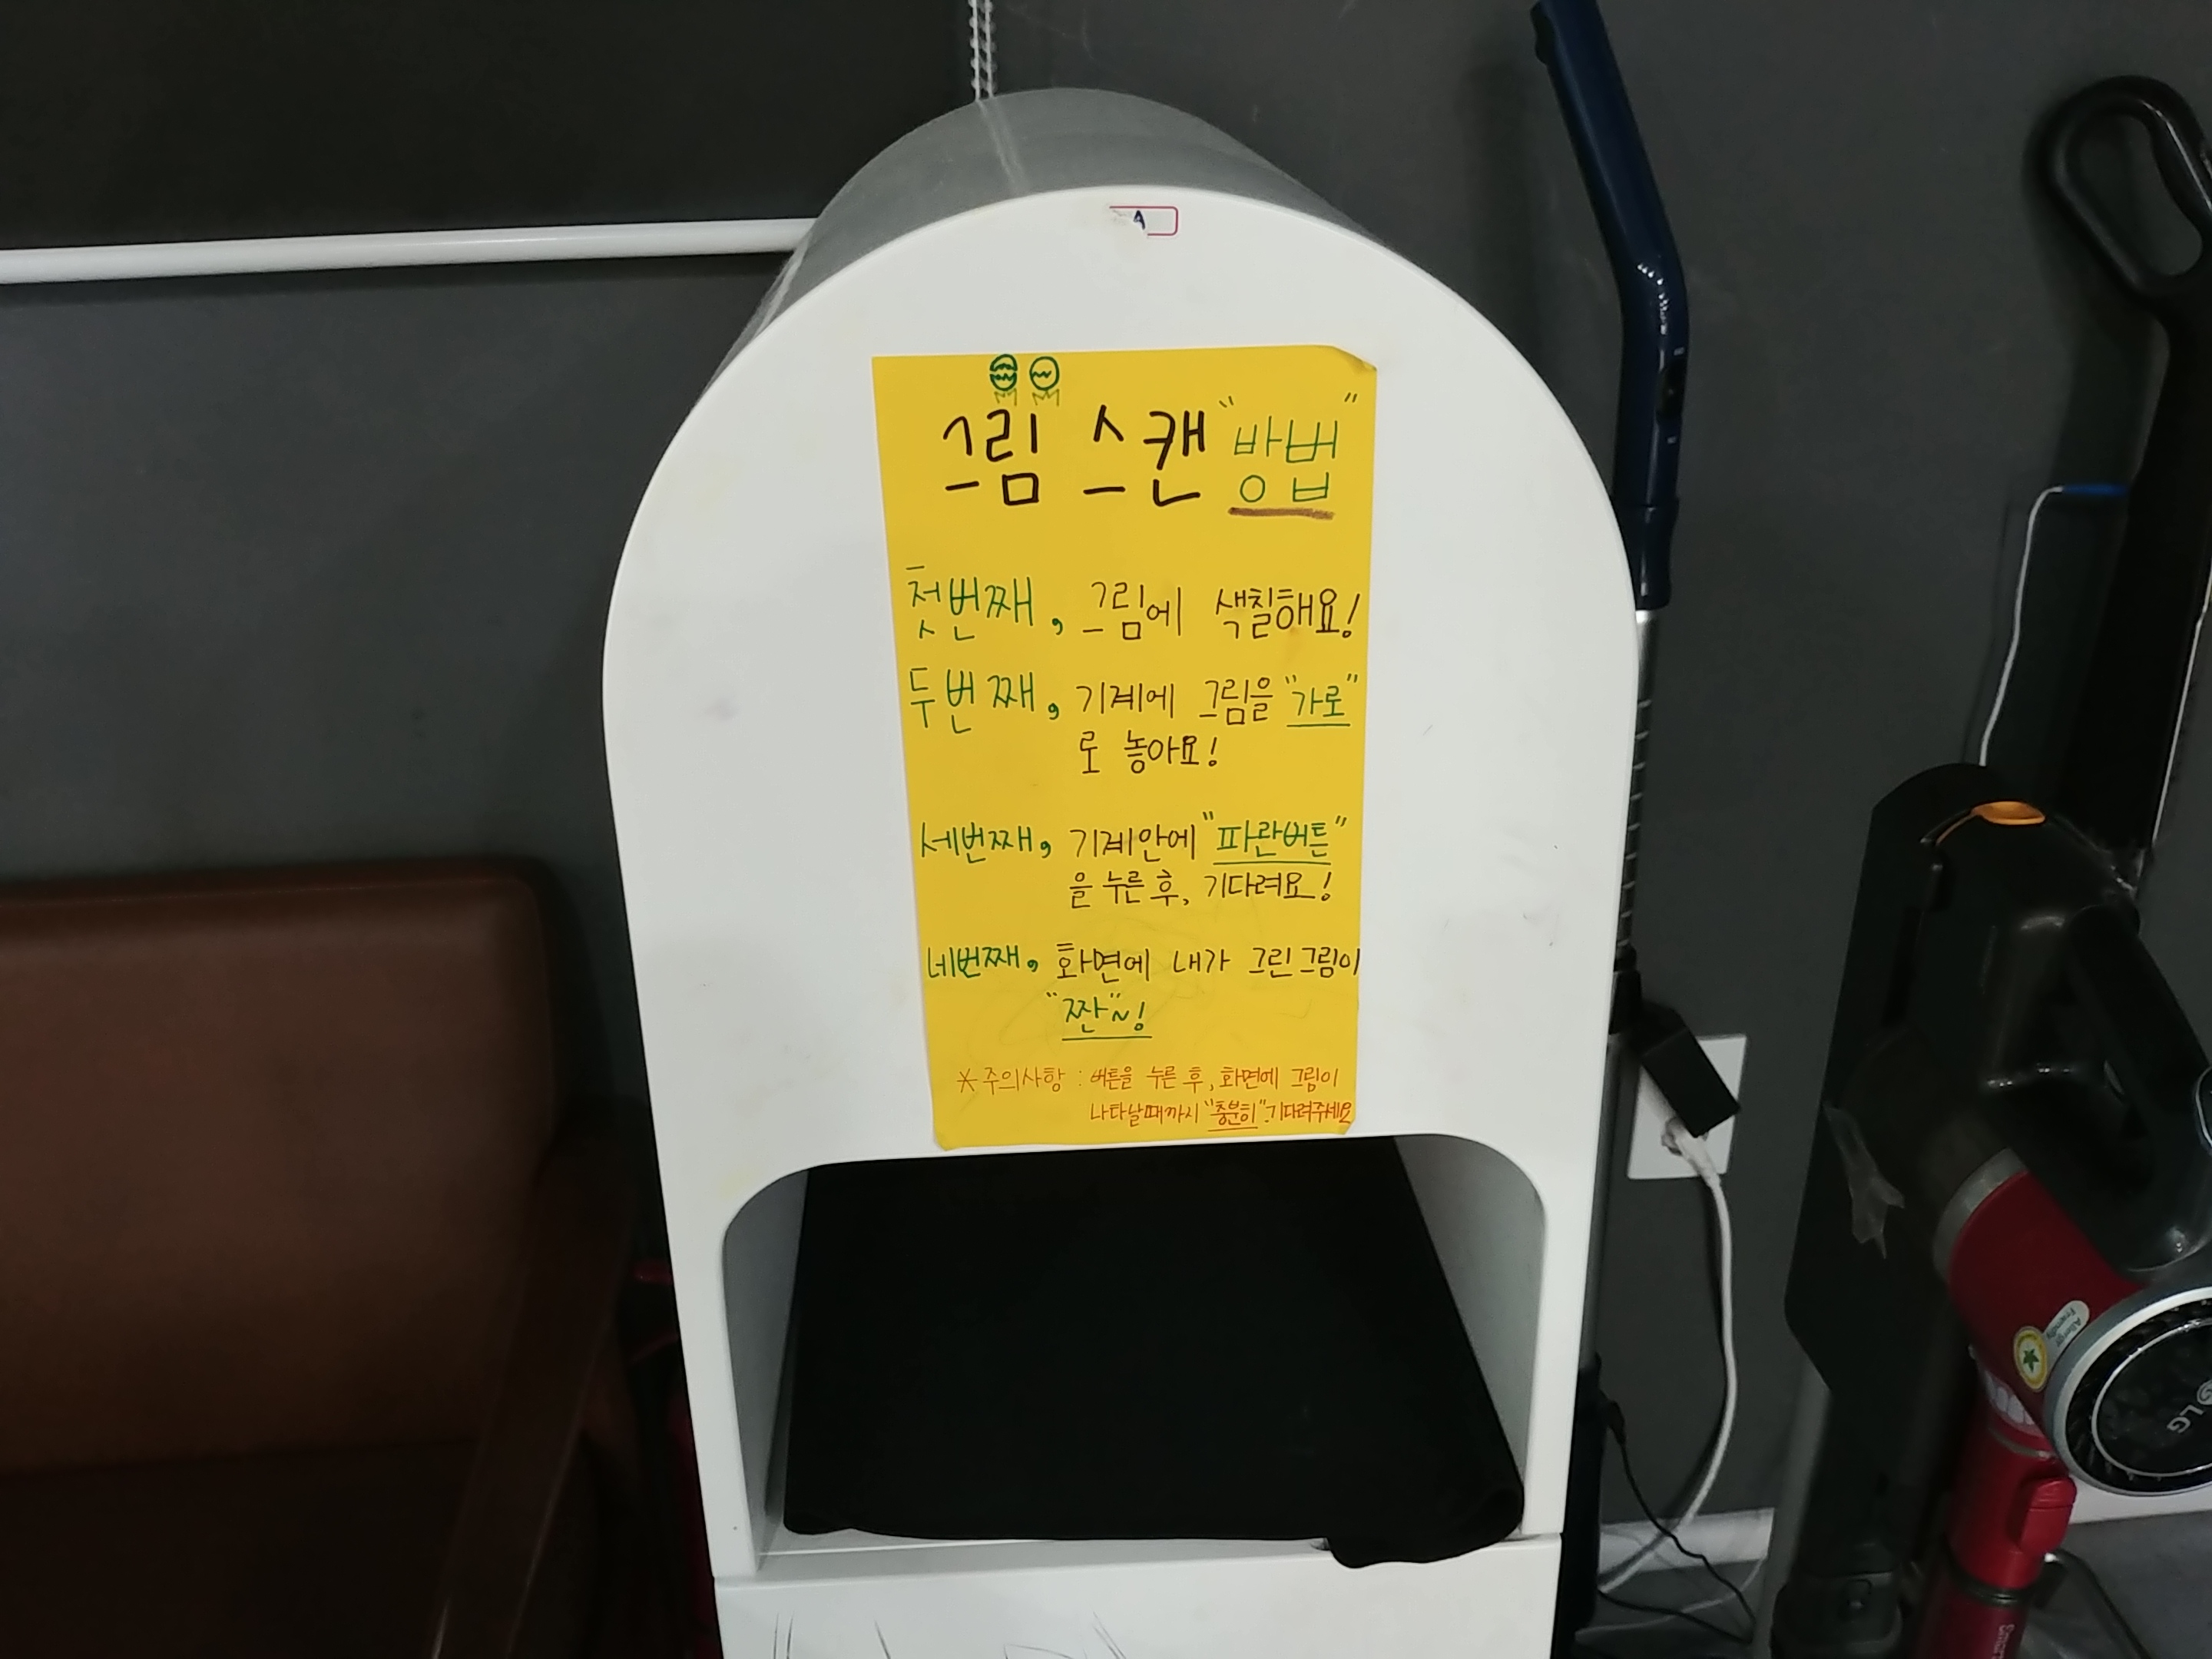 A
그림 스캔 "방법"
첫번째, 그림에 색칠해요!
두번째, 기계에 그림을 "가로"
로 놓아요!
세번째, 기계안에 "파란버튼"
을 누른 후, 기다려요!
네번째, 화면에 내가 그린 그림이
"짠"~!
* 주의사항 : 버튼을 누른 후, 화면에 그림이
나타날때까지 "충분히" 기다려주세요
Allergy
Friendly
LG